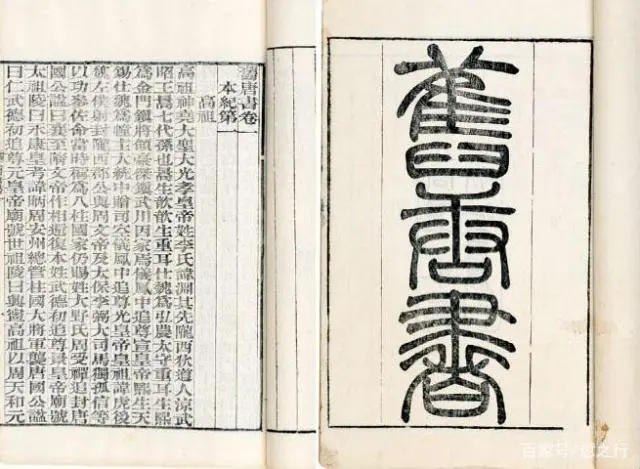 舊唐書
舊唐書卷一
本紀第一
高祖
高祖神堯大聖大光孝皇帝姓李氏諱淵其先隴西狄道人涼武
昭王暠七代孫也暠生歆歆生重耳仕魏爲弘農太守重耳生熙
爲金門鎮將領豪傑鎮武川因家焉儀鳳中追尊宣皇帝熙生天
錫仕魏爲幢主大統中贈司空儀鳳中追尊光皇帝皇祖諱虎後
魏左僕射封隴西郡公與周文帝及太保李弼大司馬獨孤信等
以功參佐命當時稱爲八柱國家仍賜姓大野氏周受禪追封唐
國公諡曰襄至隋文帝作相還復本姓武德初追尊景皇帝廟號
太祖陵曰永康皇考諱昞周安州總管柱國大將軍襲唐國公諡
曰仁武德初追尊元皇帝廟號世祖陵曰興寧高祖以周天和元
百家号